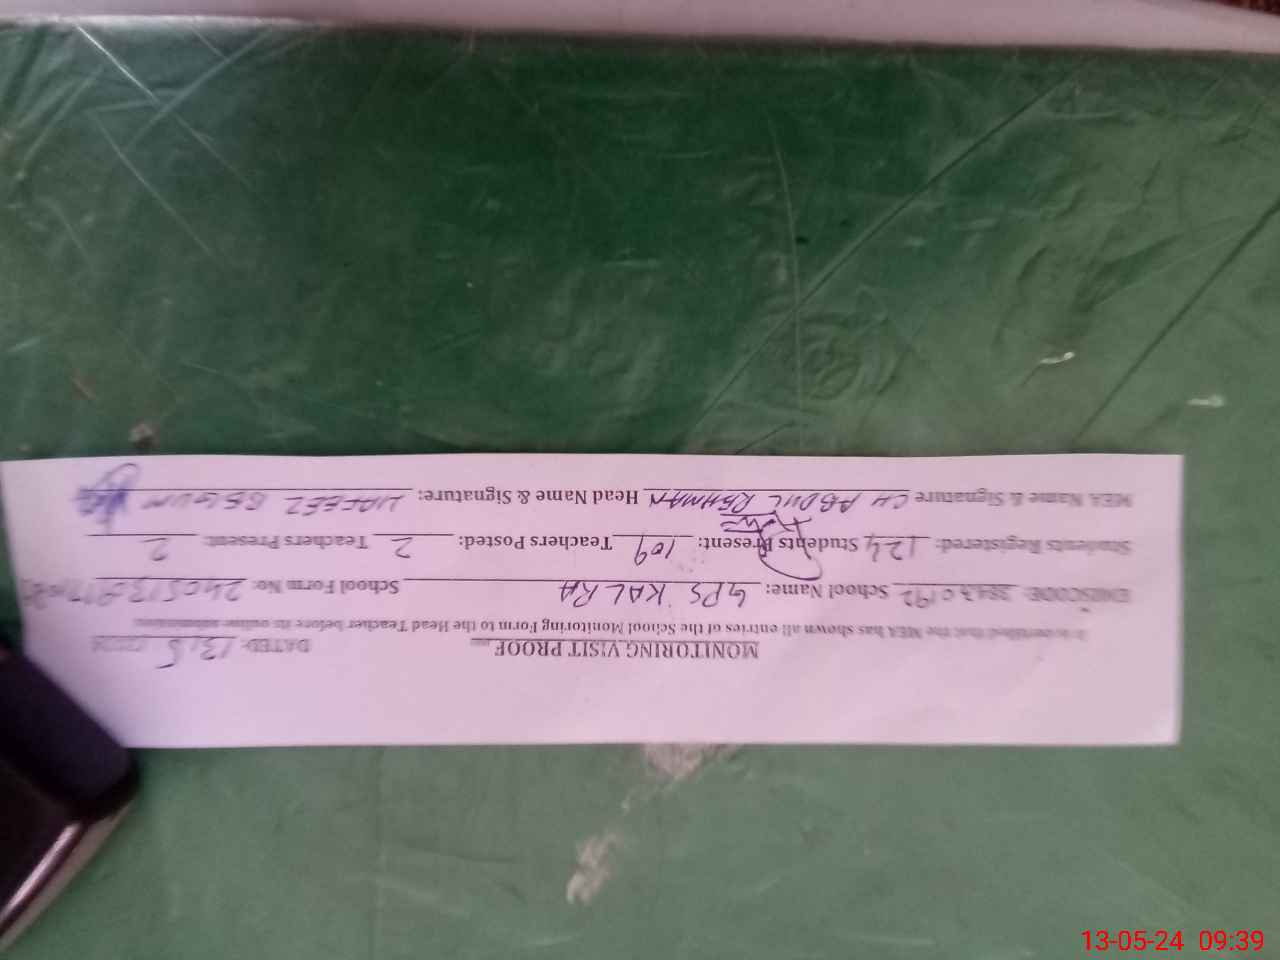 MONITORING VISIT PROOF
DATED: 13,5
It is certified that the MEA has shown all entries of the School Monitoring Form to the Head Teacher before its online submission
EMISCODE: School Name: GPS KALRA School Form No:
Students Registered: 124 Students Present: 109 Teachers Posted: 2 Teachers Present: 2
MEA Name & Signature CH ABDUL REHMAN Head Name & Signature: HAFEEZ BEGUM
13-05-24 09:39